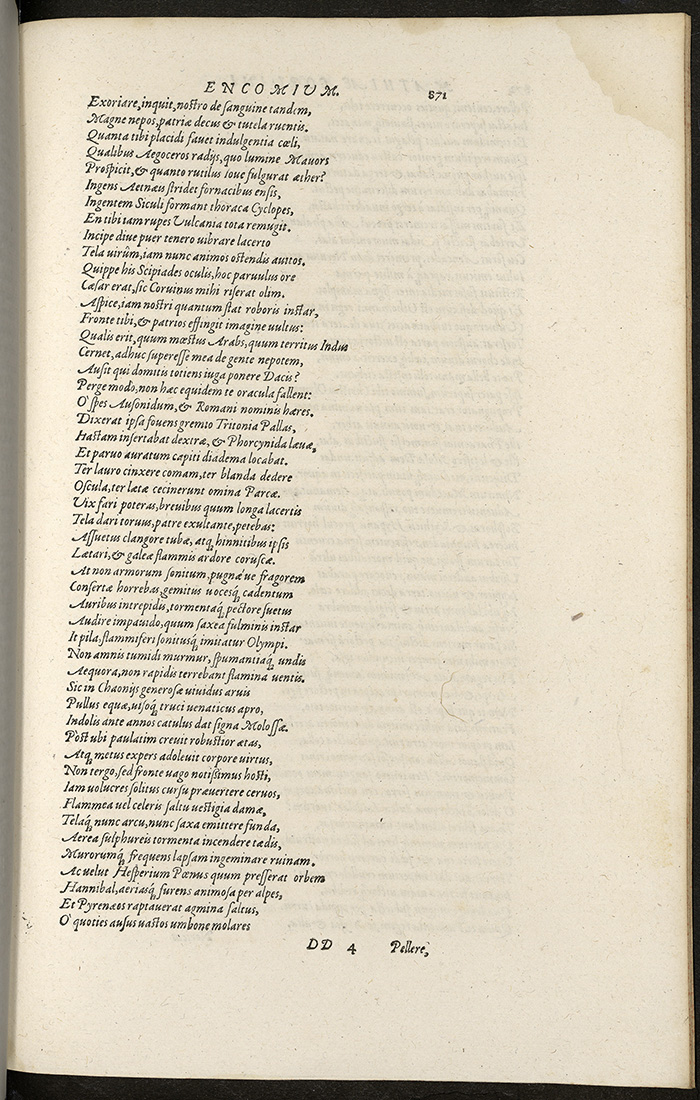 ENCOMIUM. 871
Exoriare, inquit, nostro de sanguine tandem,
Magne nepos, patriæ decus & tutela ruentis.
Quanta tibi placidi fauet indulgentia cœli,
Qualibus Aegoceros radijs, quo lumine Mauors
Prospicit, & quanto rutilus Ioue fulgurat æther?
Ingens Aetnæis stridet fornacibus ensis,
Ingentem Siculi formant thoraca Cyclopes,
En tibi tam rupes Vulcania tota remugit.
Incipe diue puer tenero uibrare lacerto
Tela uirûm, iam nunc animos ostendis auitos.
Quippe his Scipiades oculis, hoc paruulus ore
Cæsar erat, sic Coruinus mihi riserat olim.
Aspice, iam nostri quantum stat roboris instar,
Fronte tibi, & patrios effingit imagine uultus:
Qualis erit, quum mœstus Arabs, quum territus Indus
Cernet, adhuc superesse mea de gente nepotem,
Ausit qui domitis totiens iuga ponere Dacis?
Perge modo, non hæc equidem te oracula fallent:
O' spes Ausonidum, & Romani nominis hæres.
Dixerat ipsa fouens gremio Tritonia Pallas,
Hastam insertabat dextræ, & Phorcynida læuæ,
Et paruo auratum capiti diadema locabat.
Ter lauro cinxere comam, ter blanda dedere
Oscula, ter lætæ cecinerunt omina Parcæ.
Vix fari poteras, breuibus quum longa lacertis
Tela dari toruus, patre exultante, petebas:
Assuetus clangore tubæ, atq́ hinnitibus ipsis
Lætari, & galeæ flammis ardore coruscæ.
At non armorum sonitum, pugnæ ue fragorem
Consertæ horrebas, gemitus uocesq́ cadentum
Auribus intrepidis, tormentaq́ pectore suetus
Audire impauido, quum saxea fulminis instar
It pila, flammiferi sonitusq́ imitatur Olympi.
Non amnis tumidi murmur, spumantiaq́ undis
Aequora, non rapidis terrebant flamina uentis.
Sic in Chaonijs generosæ uiuidus aruis
Pullus equæ, uisoq́ truci uenaticus apro,
Indolis ante annos catulus dat signa Molossæ.
Post ubi paulatim creuit robustior ætas,
Atq́ metus expers adoleuit corpore uirtus,
Non tergo, sed fronte uago notissimus hosti,
Iam uolucres solitus cursu præuertere ceruos,
Flammea uel celeris saltu uestigia damæ,
Telaq́ nunc arcu, nunc saxa emittere funda,
Aerea sulphureis tormenta incendere tædis,
Murorumq́ frequens lapsam ingeminare ruinam.
Ac uelut Hesperium Pœnus quum presserat orbem
Hannibal, aeriasq́ furens animosa per alpes,
Et Pyrenæos raptauerat agmina saltus,
O' quoties ausus uastos umbone molares
DD 4 Pellere,